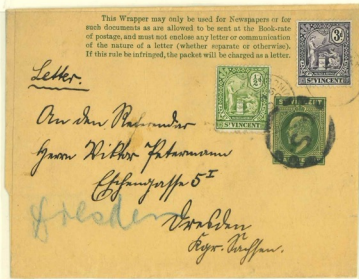 This Wrapper may only be used for Newspapers or for
such documents as are allowed to be sent at the Book-rate
of postage, and must not enclose any letter or communication
of the nature of a letter (whether separate or otherwise).
If this rule be infringed, the packet will be charged as a letter.
3d
ST VINCENT
Letter.
½d
ST VINCENT
An den
Herrn Viktor Petermann
Eschengasse 5 I
Dresden
Dresden
Kgr. Sachsen.